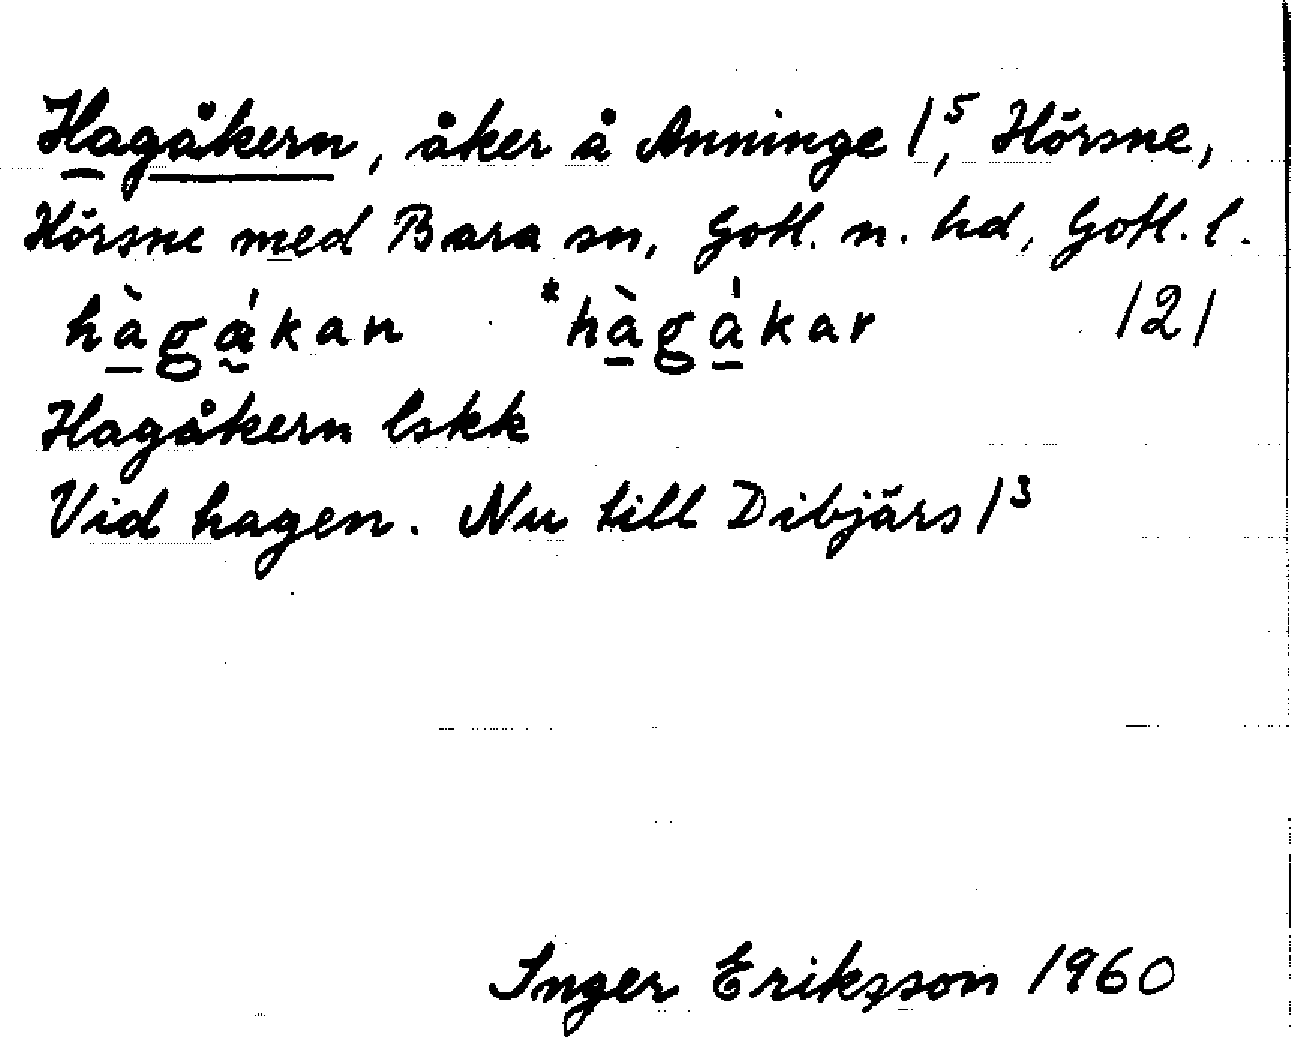 Hagåkern, åker å Anninge 1⁵, Hörsne,
Hörsne med Bara sn, Gotl. n. hd, Gotl. l.
hàgákan *hàgákar 121
Hagåkern lskk
Vid hagen. Nu till Dibjärs 1³
Inger Eriksson 1960